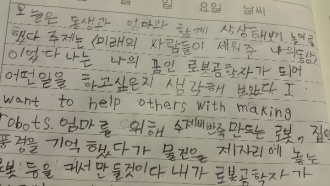 일 일 요일 날씨
오늘은 동생과 엄마와 함께 상상해본 놀이를
했다 주제는 <미래의 사람들이 세워준 나의동상>
이었다 나는 나의 꿈인 로봇공학자가 되어
어떤일을 하고싶은지 생각해 보았다 I
want to help others with making
robots. 엄마를 위해 수제비빠르게 만드는 로봇, 집안
풍경을 기억했다가 물건을 제자리에 놓는
로봇 등을 커서 만들것이다 내가 로봇공학자가